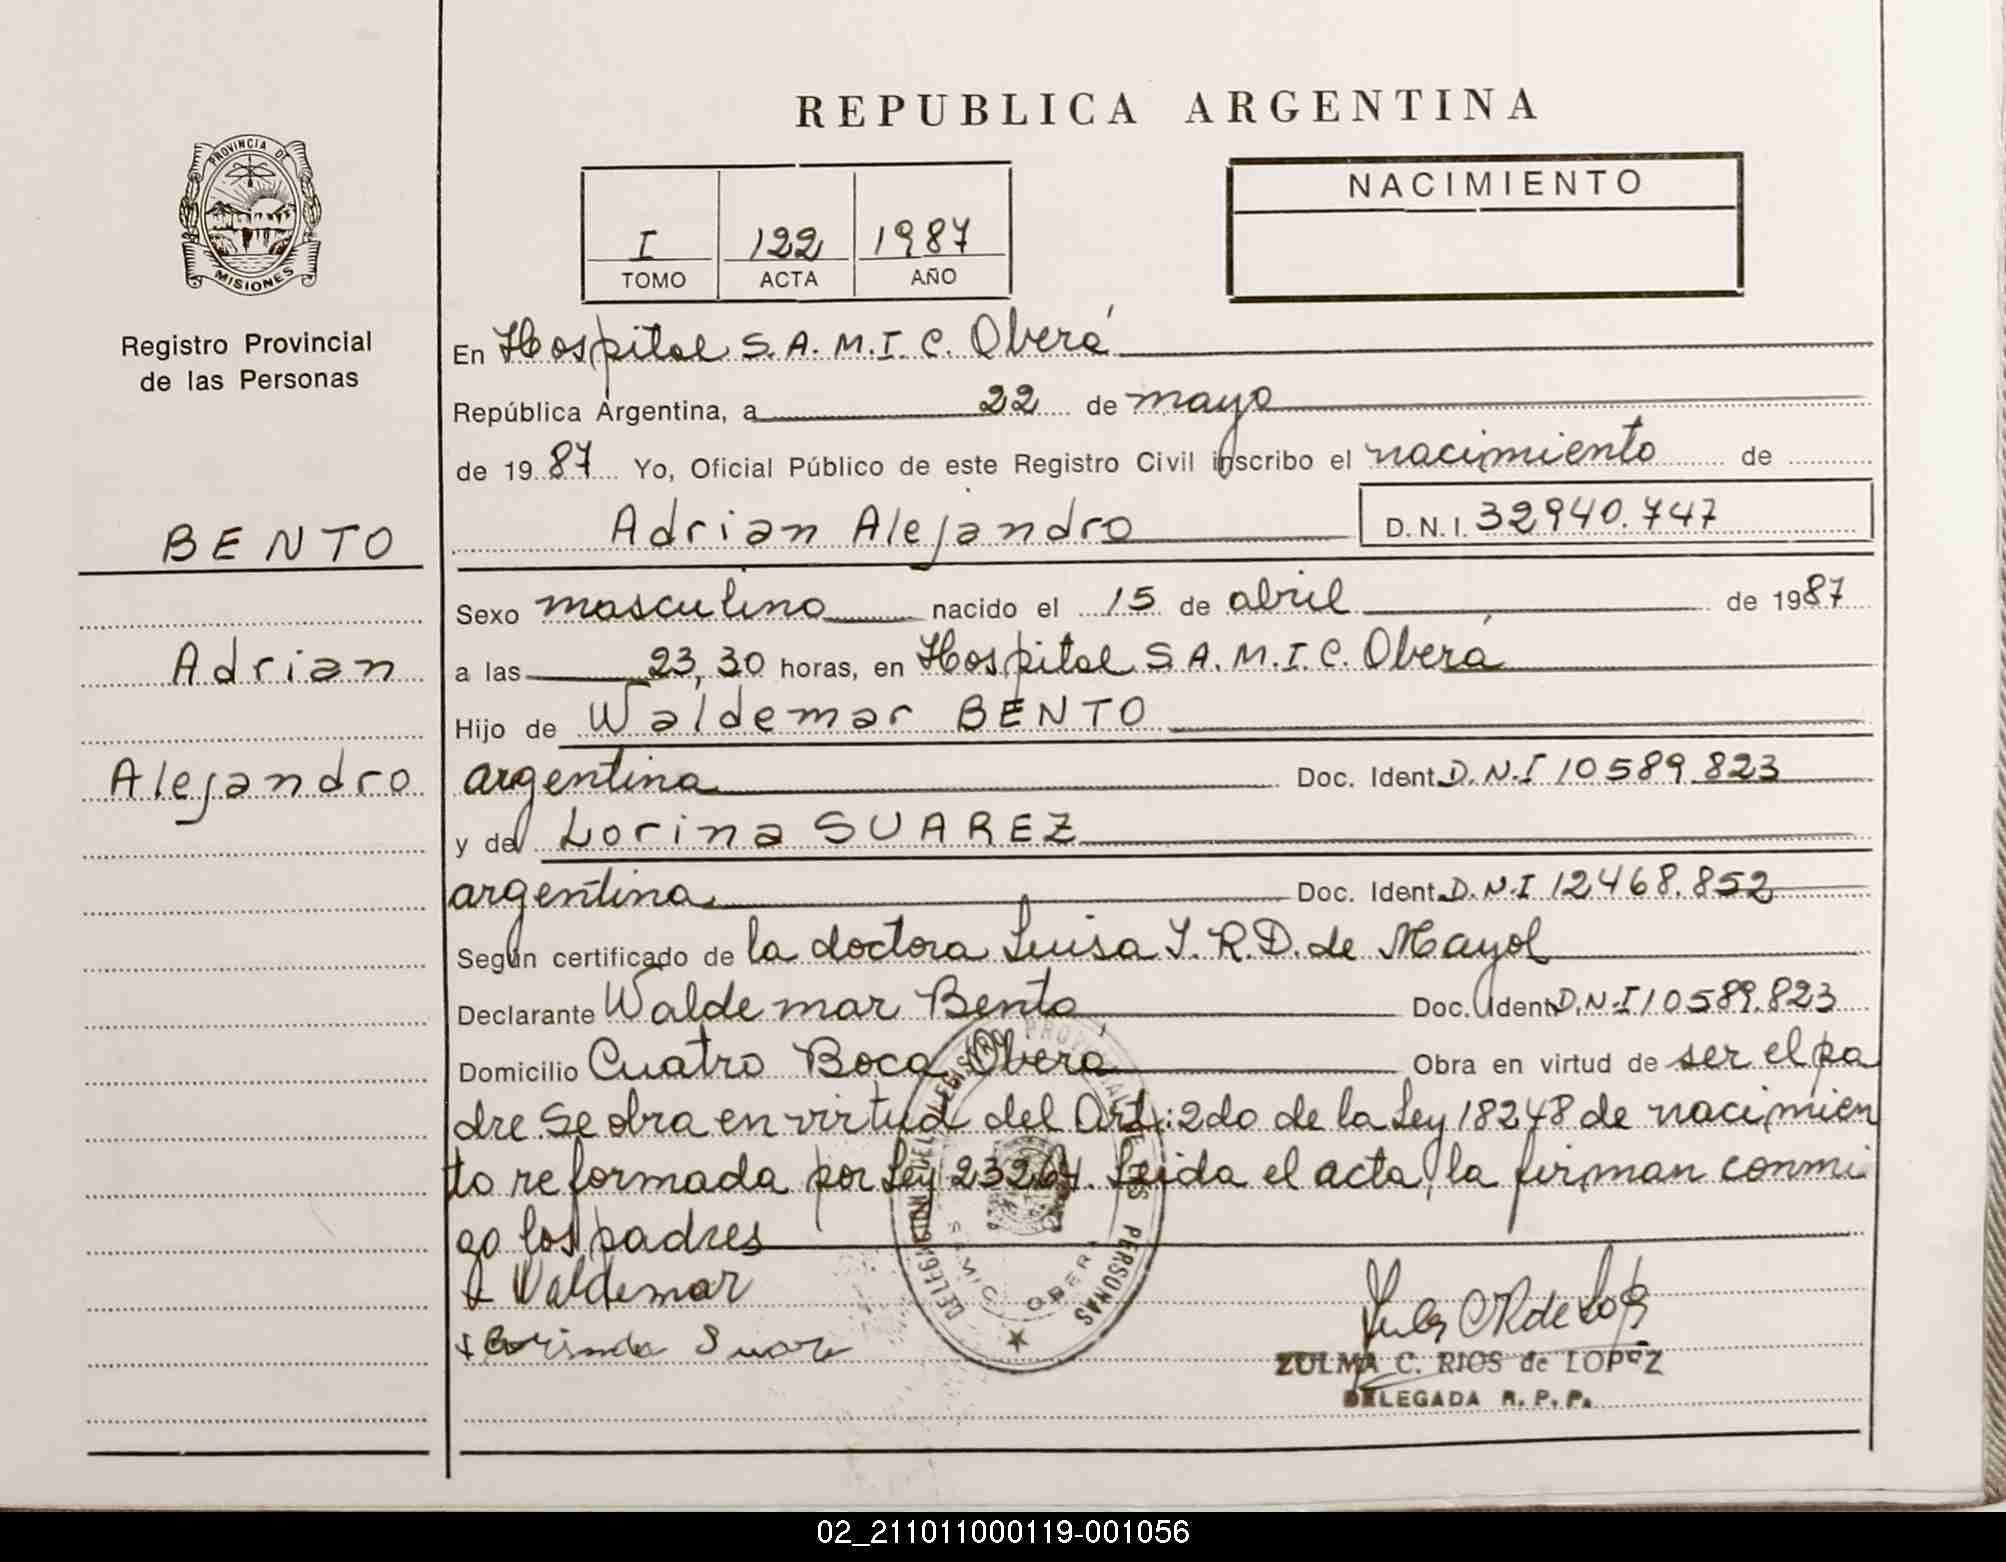 REPUBLICA ARGENTINA
PROVINCIA DE
MISIONES
Registro Provincial
de las Personas
I 122 1987
TOMO ACTA AÑO
NACIMIENTO
En Hospital S.A.M.I.C. Oberá
República Argentina, a 22 de mayo
de 1987 Yo, Oficial Público de este Registro Civil inscribo el nacimiento de
BENTO
Adrian Alejandro D.N.I. 32940.747
Sexo masculino nacido el 15 de abril de 1987
Adrian
a las 23,30 horas, en Hospital S A.M.I.C. Oberá
Hijo de Waldemar BENTO
Alejandro
argentina Doc. Ident. D.N.I 10589.823
y de Lorina SUAREZ
argentina Doc. Ident. D.N.I 12468.852
Según certificado de la doctora Luisa Y.R.D. de Mayol
Declarante Waldemar Bento Doc. Ident. D.N.I 10589.823
Domicilio Cuatro Boca Oberá Obra en virtud de ser el pa
dre. Se obra en virtud del Art: 2do de la Ley 18248 de nacimien
to reformada por Ley 23264. Leida el acta, la firman conmi
go los padres
Waldemar
ZULMA C. RIOS de LOPEZ
DELEGADA R. P. P.
DELEGACION DEL REGISTRO PROVINCIAL DE LAS PERSONAS
SAMIC OBERA
02_211011000119-001056